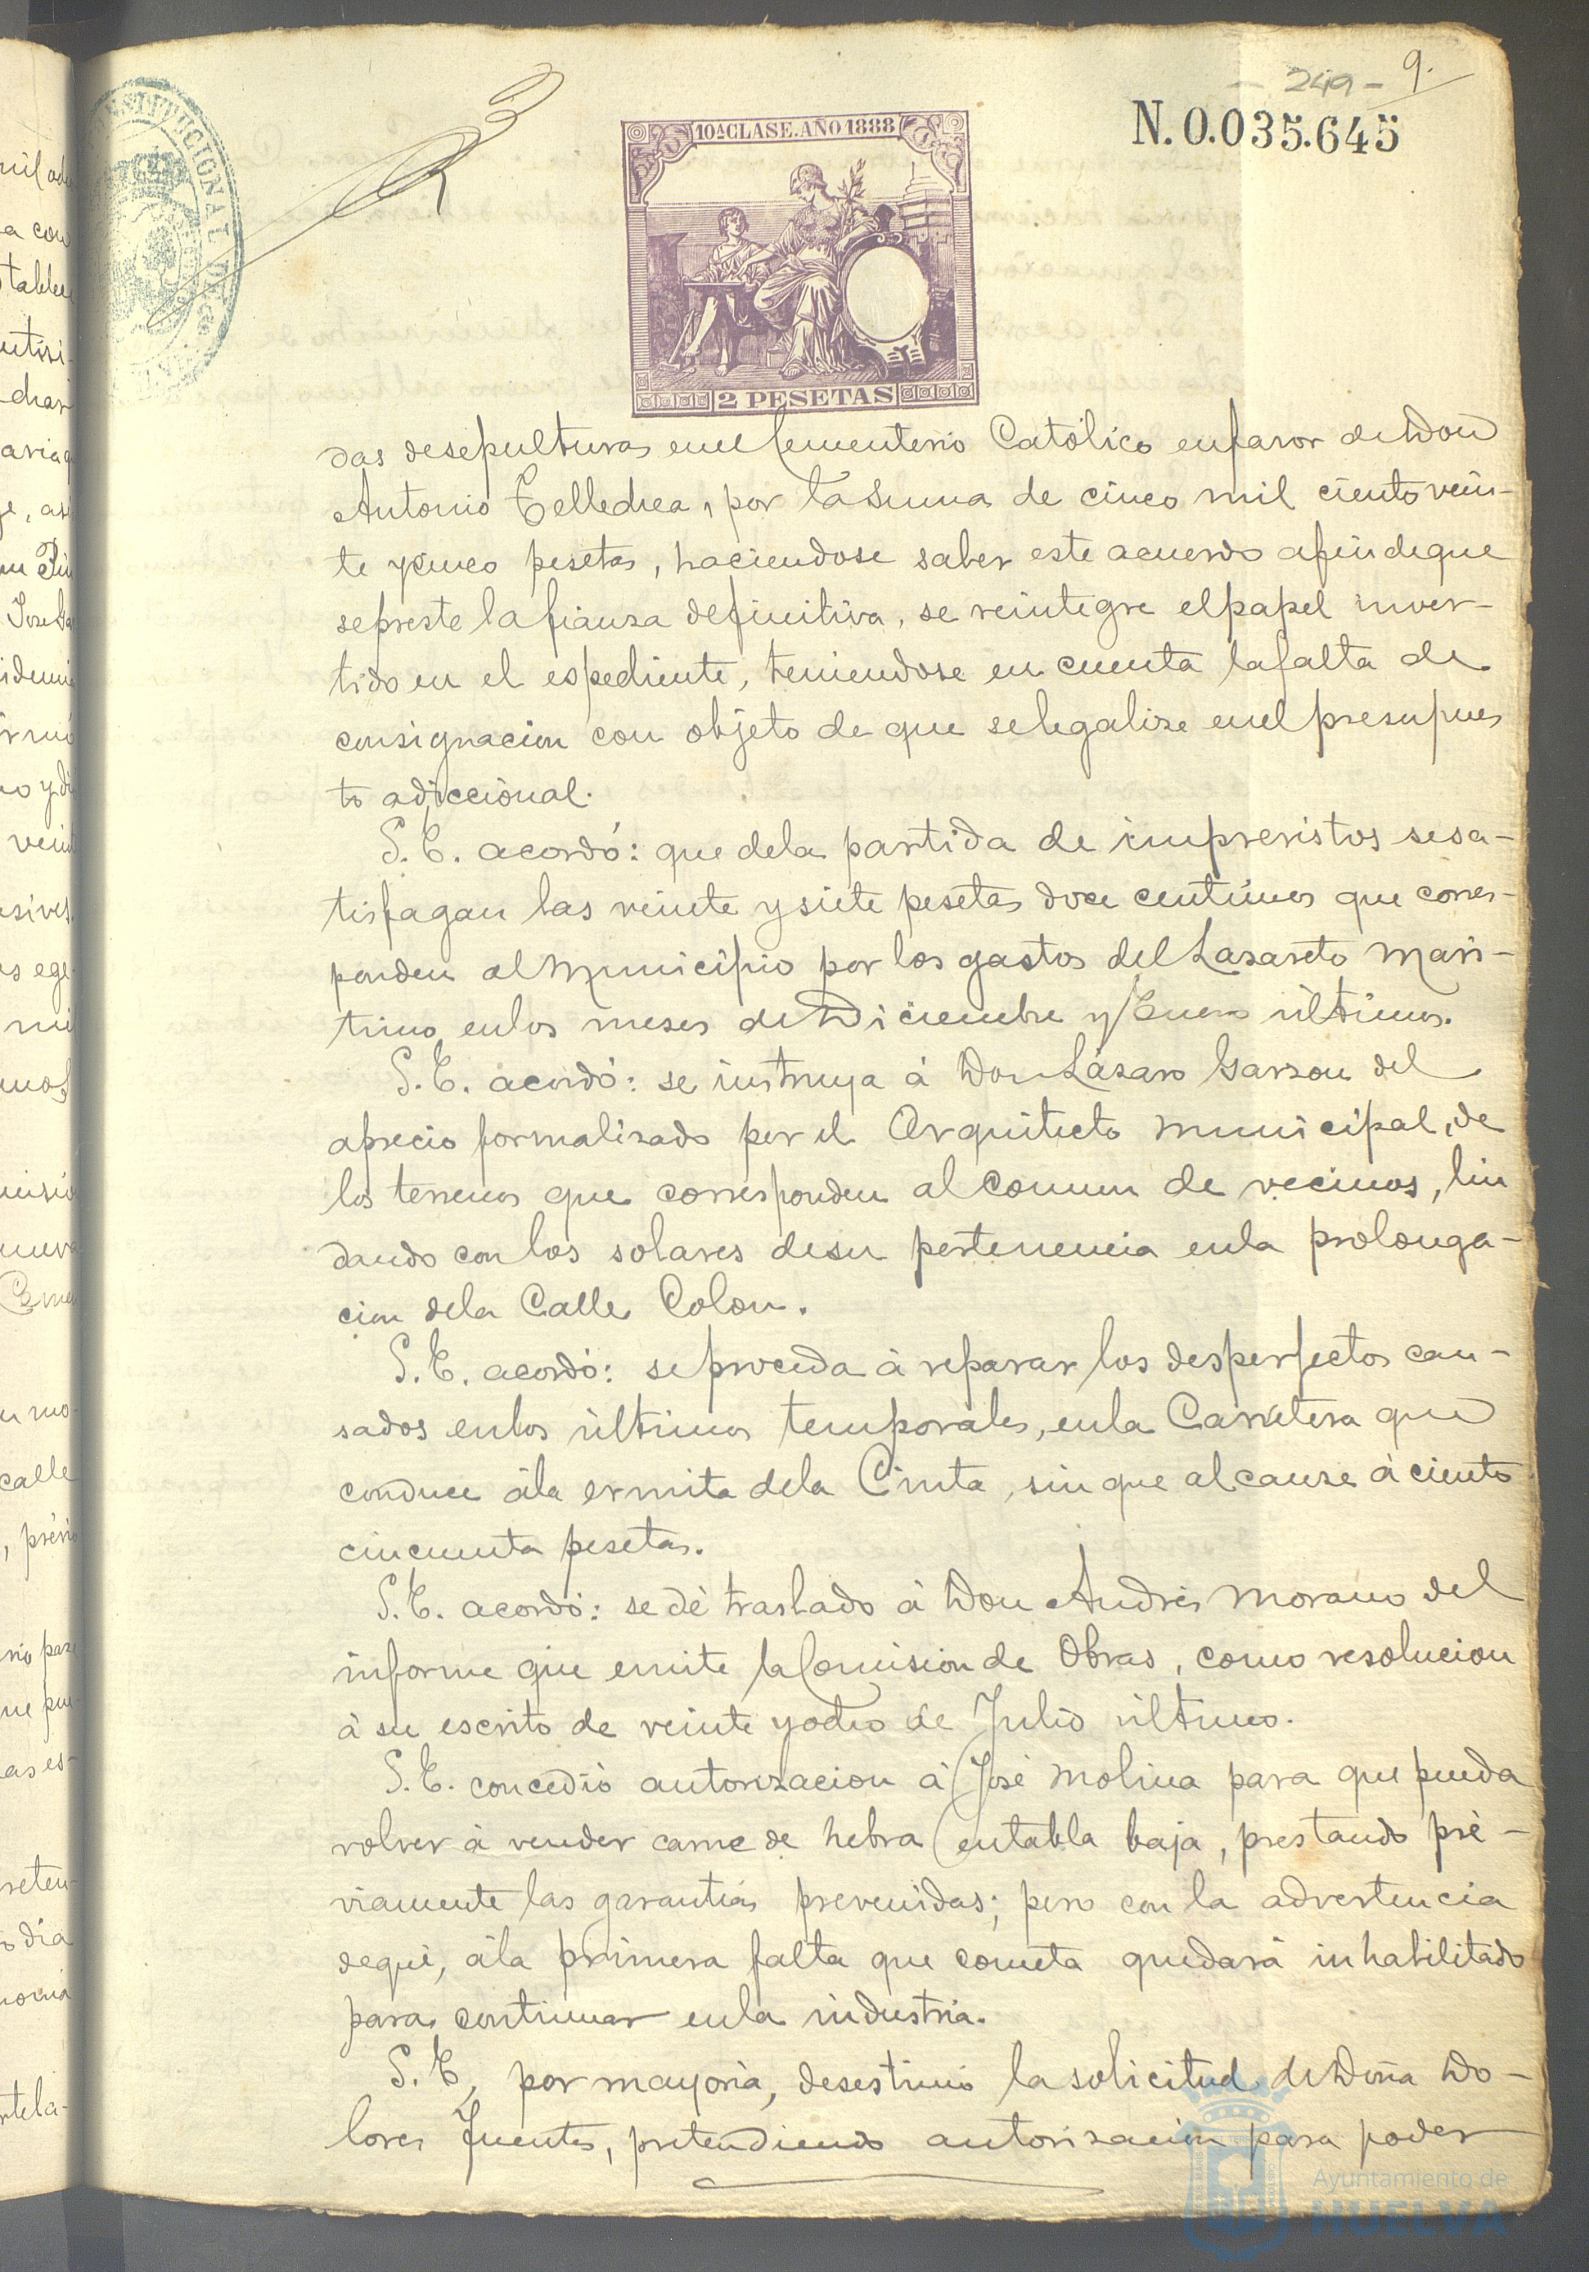 - 249 - 9.
N. 0.035.645
10ª CLASE. AÑO 1888
2 PESETAS
das desepulturas enel Cementerio Católico enfavor de Don
Antonio Telledrea, por la suma de cinco mil ciento vein-
te ycinco pesetas, haciendose saber este acuerdo afindeque
sepreste la fianza definitiva, se reintegre elpapel inver-
tido en el espediente, teniendose en cuenta lafalta de
consignacion con objeto de que selegalize enel presupues
to adiccional.
S.E. acordó: que dela partida de imprevistos sesa-
tisfagan las veinte ysiete pesetas doce centimos que corres-
ponden al Municipio por los gastos del Lazareto Mari-
timo enlos meses de Diciembre y Enero últimos.
S.E. acordó: se instruya á Don Lázaro Garzon del
aprecio formalizado por el Arquitecto municipal, de
los terrenos que corresponden al comun de vecinos, lin
dando con los solares desu pertenencia enla prolonga-
cion dela Calle Colon.
S.E. acordó: seproceda á reparar los desperfectos cau-
sados enlos últimos temporales, enla Carretera que
conduce ála ermita dela Cinta, sin que alcanze á ciento
cincuenta pesetas.
S.E. acordó: se dé traslado á Don Andrés Morano del
informe que emite la Comision de Obras, como resolucion
á su escrito de veinte yocho de Julio último.
S.E. concedió autorizacion á José Molina para que pueda
volver á vender carne de hebra en tabla baja, prestando pré-
viamente las garantias prevenidas; pero con la advertencia
dequé, ála primera falta que cometa quedará inhabilitado
para continuar enla industria.
S.E, por mayoria, desestimó la solicitud de Doña Do-
lores Fuentes, pretendiendo autorizacion para poder
Ayuntamiento de
HUELVA